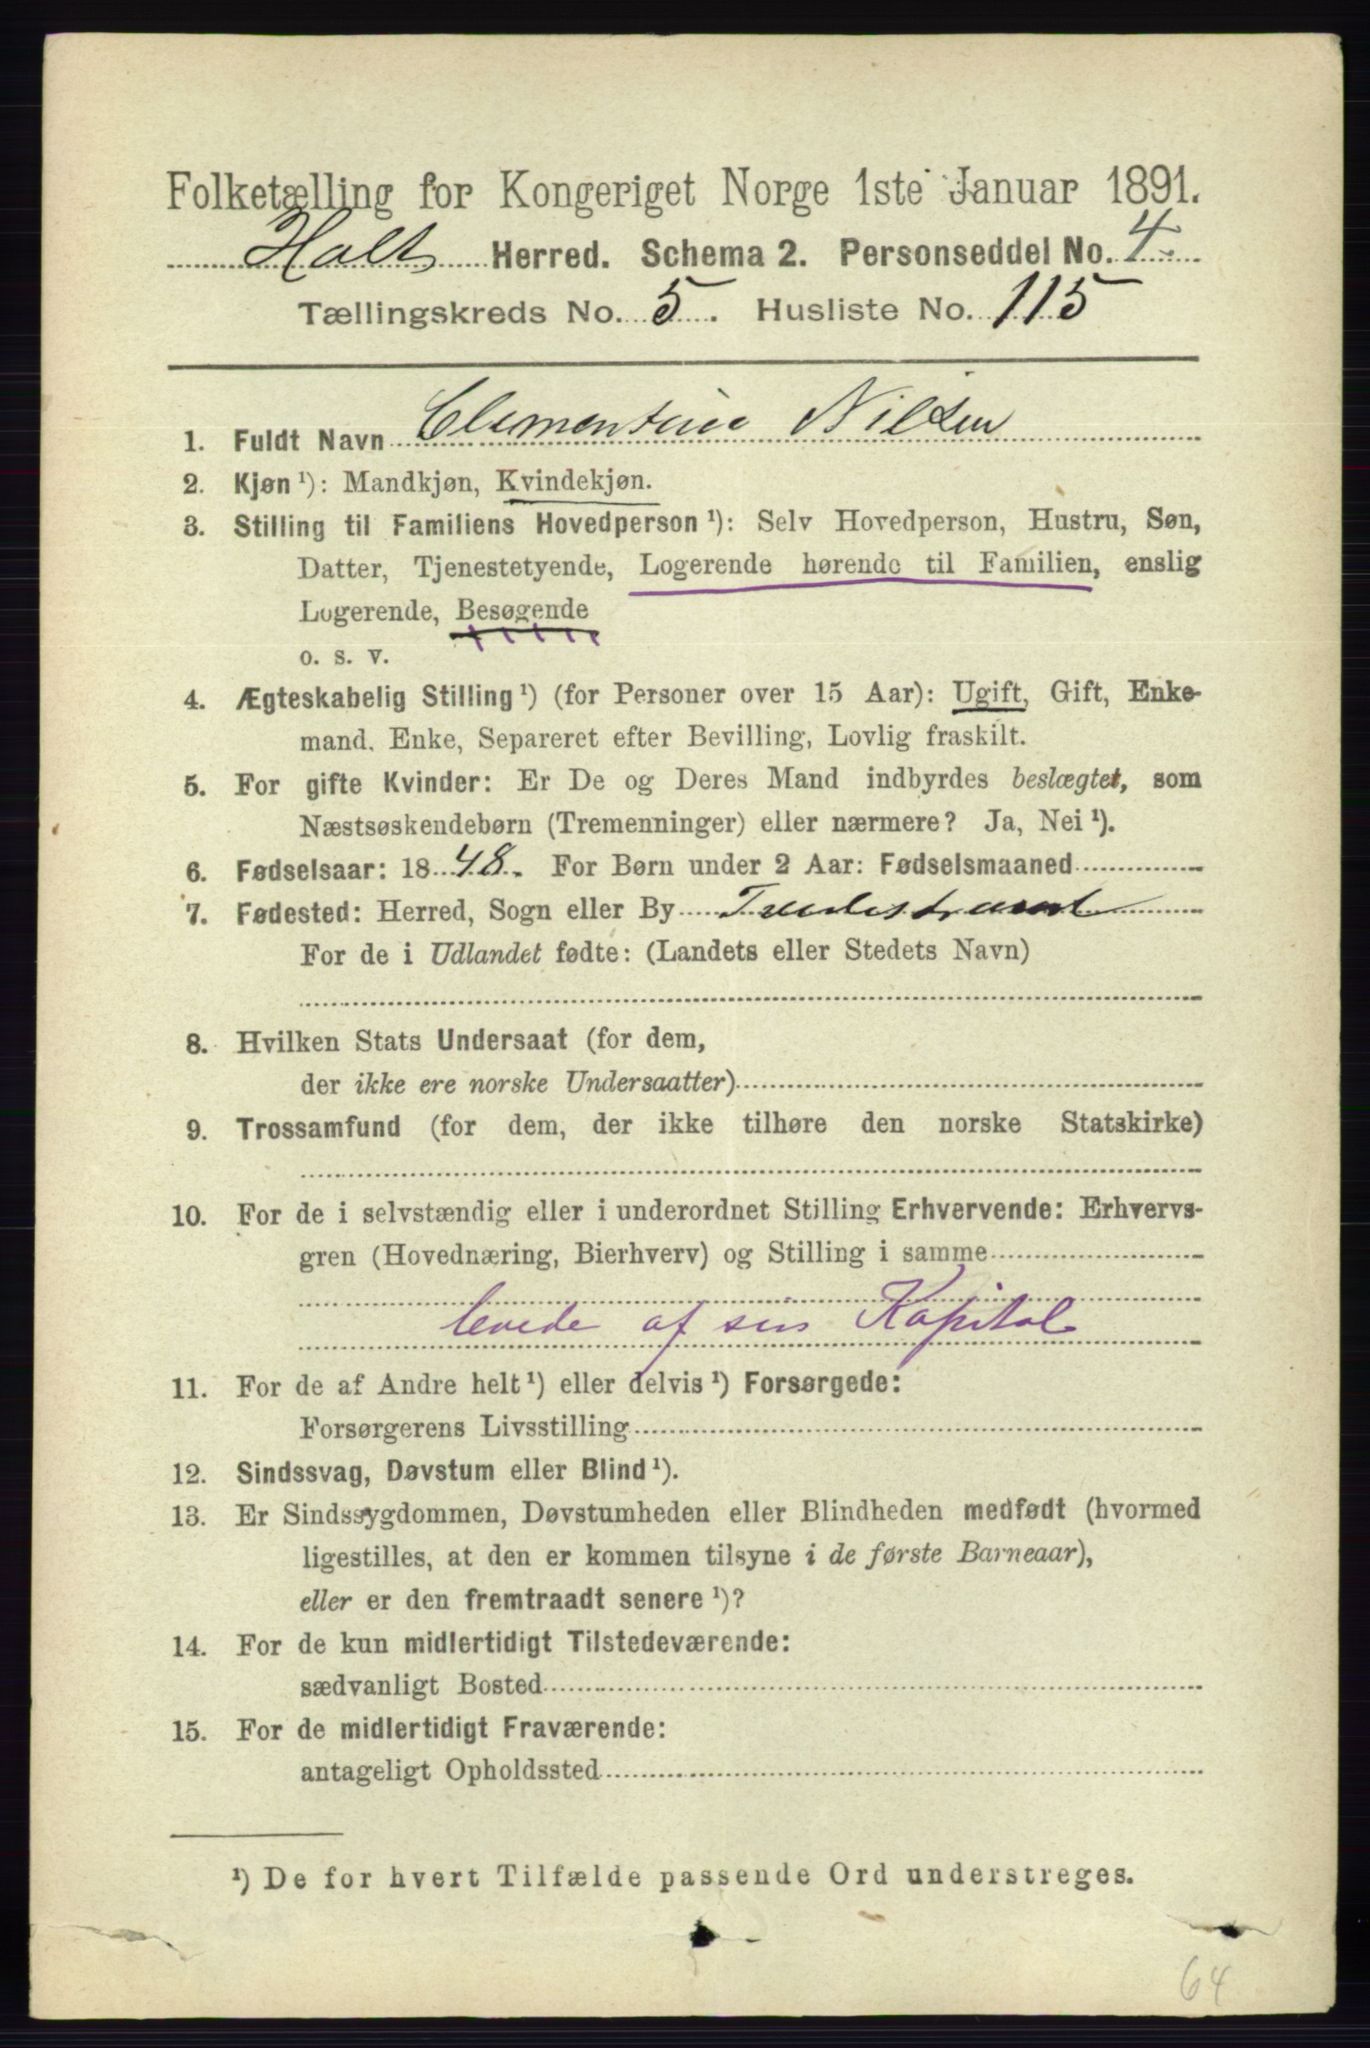 Folketælling for Kongeriget Norge 1ste Januar 1891.
Holt Herred. Schema 2. Personseddel No. 4
Tællingskreds No. 5. Husliste No. 115
1. Fuldt Navn Clementine Nilsen
2. Kjøn ¹): Mandkjøn, Kvindekjøn.
3. Stilling til Familiens Hovedperson ¹): Selv Hovedperson, Hustru, Søn,
Datter, Tjenestetyende, Logerende hørende til Familien, enslig
Logerende, Besøgende
o. s. v.
4. Ægteskabelig Stilling ¹) (for Personer over 15 Aar): Ugift, Gift, Enke-
mand, Enke, Separeret efter Bevilling, Lovlig fraskilt.
5. For gifte Kvinder: Er De og Deres Mand indbyrdes beslægtet, som
Næstsøskendebørn (Tremenninger) eller nærmere? Ja, Nei ¹).
6. Fødselsaar: 1848. For Børn under 2 Aar: Fødselsmaaned
7. Fødested: Herred, Sogn eller By Tvedestrand
For de i Udlandet fødte: (Landets eller Stedets Navn)
8. Hvilken Stats Undersaat (for dem,
der ikke ere norske Undersaatter)
9. Trossamfund (for dem, der ikke tilhøre den norske Statskirke)
10. For de i selvstændig eller i underordnet Stilling Erhvervende: Erhvervs-
gren (Hovednæring, Bierhverv) og Stilling i samme
levede af sin Kapital
11. For de af Andre helt ¹) eller delvis ¹) Forsørgede:
Forsørgerens Livsstilling
12. Sindssvag, Døvstum eller Blind ¹).
13. Er Sindssygdommen, Døvstumheden eller Blindheden medfødt (hvormed
ligestilles, at den er kommen tilsyne i de første Barneaar),
eller er den fremtraadt senere ¹)?
14. For de kun midlertidigt Tilstedeværende:
sædvanligt Bosted
15. For de midlertidigt Fraværende:
antageligt Opholdssted
¹) De for hvert Tilfælde passende Ord understreges.
64